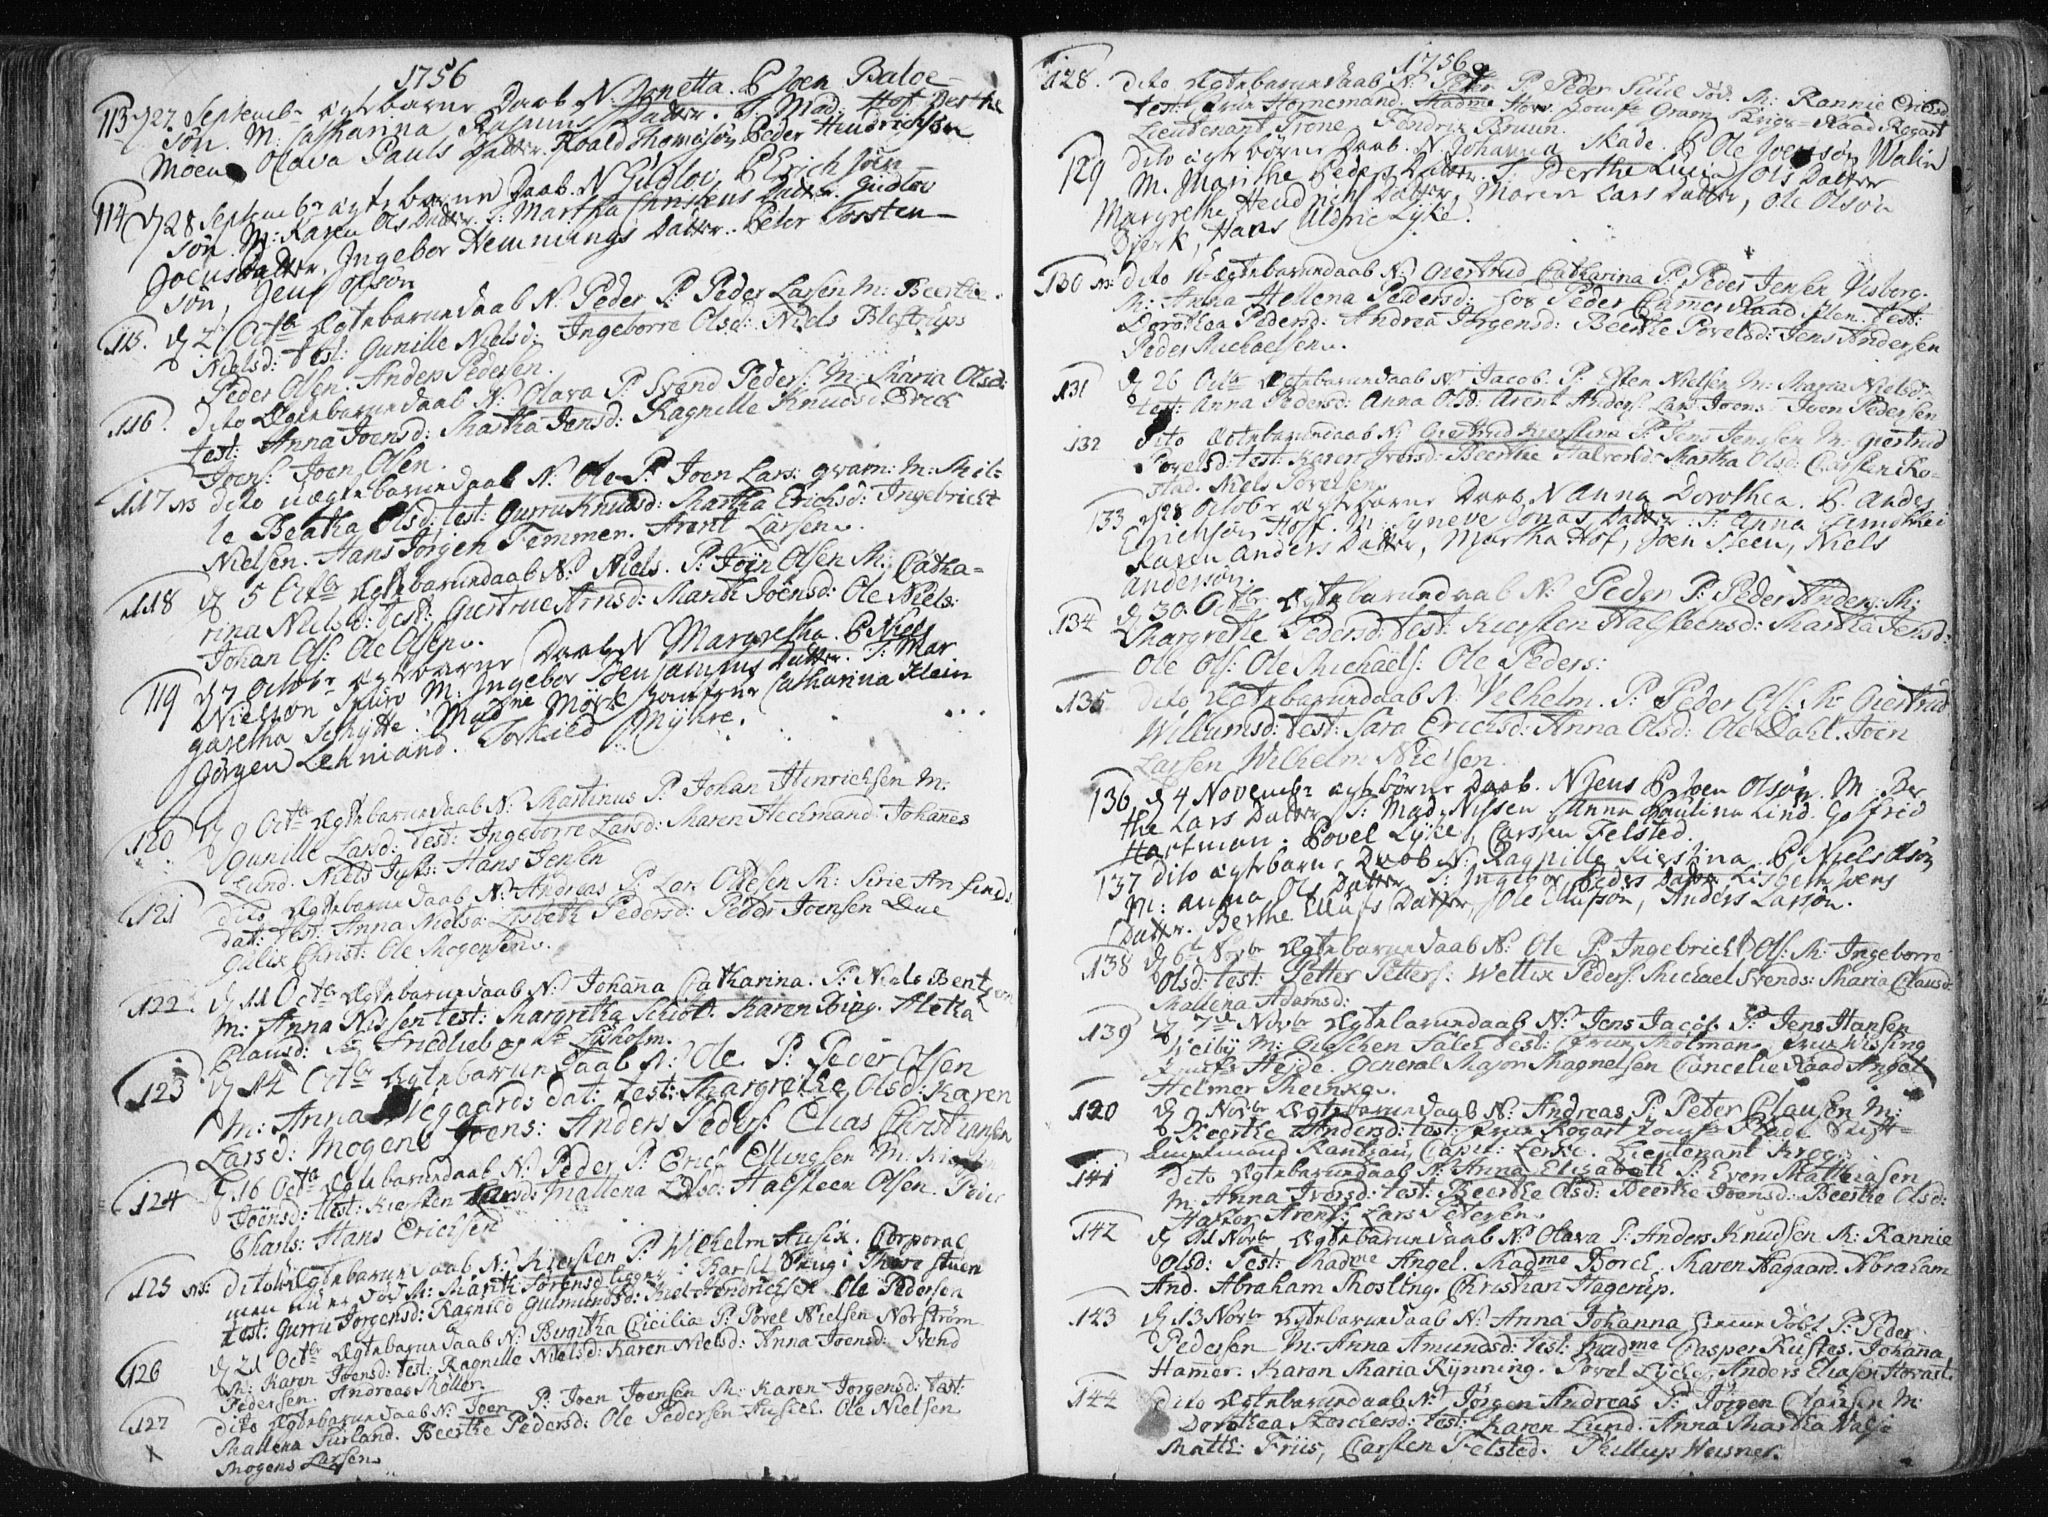 1756
113 d 27 Septembr ægte barns Daab N. Janetta. P Joen Baloe-
Søn. M: Catharina Rasmus Datter. T. Mad: Hoft Berthe
Moen Olava Pauls Datter. Roald Thomasøn Peder Hindrichsøn
114 d 28 Septembr ægte barns Daab. N Gudlov P Erich Joen-
søn. M: Karen Ols Datter T: Martha Christens Datter Gudlov
Joens Datter, Ingebor Hemmings Datter. Peter Torsten-
søn, Jens olson
115. d 2 Octbr Ægtebarn daab N: Peder P: Peder Larsen M: Beerthe
Nielsd: test: Gunille Nielsd: Ingeborre Olsd: Niels Blostrups
Peder Olsen. Anders Pedersen.
116. dito Ægtebarn daab N: Olava P: Svend Peders: M: Maria Olsd:
test: Anna Joensd: Martha Jensd: Ragnille Knudsd Erick
Joens: Joen Olsen.
117 NB dito uægtebarn daab N: Ole P: Joen Lars: gvarn: M: Mil-
le Beatha Olsd: test: Gurru Knudsd: Martha Erichsd: Ingebricht
Nielsen. Hans Jørgen Femmer. Arent Larsen.
118 d 5 Octbr Ægtebarn daab N: Niels. P: Joen Olsen M: Catha-
rina Nielsd: test: Giertrue Arnsd: Marit Joensd: Ole Niels:
Johan Ols: Ole Olsen.
119 d 7 Octobr ægte barns Daab N Margretha. P Niels
Nielsøn M: Ingebor Benjamins Datter. T: Mar
garetha Schytte. Madme Mørk Jomfrue Catharina Klein
Jørgen Lehmand. Torkild Myhre.
120 d 9 Octbr Ægtebarn daab N: Martinus P: Johan Hinrichsen M:
Gunille Larsd: test: Ingeborre Larsd: Maren Heckmand Johanes
Lund. Niels Jyks: Hans Jensen
121 dito Ægtebarn daab N: Andreas P: Lars Odesen M: Sirie
dat: test: Anna Nielsd: Lisbeth Pedersd: Peder Joensen Due
Gulix Christ: Ole Mogensen.
122. d 11 Octbr Ægtebarn daab N: Johana Catharina. P: Niels Bentzen
M: Anna Nissen test: Margretha Schiøt. Karen Bing. Aletha
Clausd: Sr Friedlieb og Sr Lysholm.
123. d 14 Octbr Ægtebarn daab N: Ole P: Peder Olsen
M: Anna Vegaards dat: test: Margrethe Olsd: Karen
Larsd: Mogens Joens: Anders Peders: Elias Christiansen
124 d 16 Octbr Ægtebarn daab N: Peder P: Erich Ellingsen M:
Joensd: test: Kiersten Larsd: Mallena Olsd: Halsteen Olsen.
Charls: Hans Erichsen
125 NB: dito Uægtebarn daab N: Kiersten P: Wilhelm Husix. Corporal
men nu død M: Marit Sørensd ligger i Barsel Krug i Thore stuen
test: Gurru Jørgensd: Ragnild Gulmundsd: Hendrichsen Ole Pedersen
126 d 21 Octbr Ægtebarn daab N: Bergitha Cicilia P: Povel Nielsen Norstrøm
M: Karen Joensd: test: Ragnille Nielsd: Karen Nielsd: Anna Joensd: Svend
Pedersen. Andreas Møller.
127 dito Ægtebarn daab N: Joen P: Joen Joensen M: Karen Jorgensd: test:
Mallena Surland. Beerthe Pedersd: Ole Pedersen Husich. Ole Nielsen
Mogens Larsen.
1756
128. dito Ægtebarn daab N: Peter P: Peder død. M: Rannie Erichsd
test: Frue Hornemand. Madme Horn. Jomfr Gram Krigs-Raad Rogart
Lieutenant Trone Fendrix Bruun.
129 dito ægte børns Daab. N Johanna Skade. P Ole Joensøn Walin
M. Marithe Peders Datter. T. Berthe Lucia Ols Datter
Margrethe Hendrichs Datter, Maren Lars Datter, Ole Olsøn
Bierk, Hans Uldric Lyke.
130 NB: dito Uægtebarn daab N: Giertrud Catharina P: Peder Jensen Visberg.
M: Anna Hellena Pedersd: hos Peder Camer Raad test:
Dorothea Pedersd: Andrea Jorgensd: Beerthe Povelsd: Jens Andersen
Peder Michaelsen.
131 d 26 Octbr Ægtebarn daab N: Jacob. P: Esten Nielsen M: Maria Nielsd:
test: Anna Pedersd: Anna Olsd: Arent Anders: Lars Joens: Joen Pedersen
132 dito Ægtebarn daab N: Giertrud Kierstina P: Jens Jensen M: Giertrud
Povelsd: test: Karen Iversd: Beerthe Halvorsd: Martha Olsd: Carsten Ro-
stad. Niels Iversen.
133 d 28 Octobr ægte barns Daab N Anna Dorothea. P. Andes
Erichsøn Hoff. M: Syneve Jonas Datter. T: Anna
Karen Anders Datter, Martha Hof, Joen Steen, Niels
Andersøn.
134 d 30 Octbr: Ægtebarn daab N: Peder P: Peder Anders: M:
Margrethe Pedersd: test: Kiersten Halsteensd: Martha Jensd:
Ole Ols: Ole Michaels: Ole Peders:
135 dito Ægtebarn daab N: Velhelm. P: Peder Ols: M: Giertrud
Willumsd: test: Sara Erichsd: Anna Olsd: Ole Dahl. Joen
Larsen Wilhelm Nielsen.
136 d 4 Novembr ægte børns Daab. N Jens P Joen Olsøn. M: Ber
the Lars Datter T: Mad. Nissen Anna Paulina Lind. Golfrid
Hartman. Povel Lyke, Carsten Felsted.
137 dito ægte barns Daab N: Ragnille Kierstina. P Niels Olsøn
M: anna Ols Datter T: Ingebor Peders Datter Lisbeth Joens
Datter. Berthe Ellufs Datter, Ole Ellufsøn, Anders Larsøn.
138 d 6 Novbr Ægtebarn daab N: Ole P: Ingebricht Ols: M: Ingeborre
Olsd: test: Petter Petters: Wettix Peders: Michael Svends: Maria Clausd:
Mallena Adamsd:
139 d 7de Novbr Ægtebarn daab N: Jens Jacob. P: Jens Hansen
Veiby M: Giesken Saler test: Frue Molman. Frue Wissing
Heide. General Major Magnelsen Cancelie Raad Angel
Helmer Meinxe.
140 d 9 Novbr Ægtebarn daab N: Andreas P: Peter Clausen M:
Beerthe Andersd: test: Frue Rogart Jomfr Stift-
Amtmand Rantzau, Capit: Lerke. Lieutenant Krog.
141 Dito Ægtebarn daab N: Anna Elisabeth P: Even Mathiasen
M: Anna Iversd: test: Beerthe Olsd: Beerthe Joensd: Beerthe Olsd:
Haktor Arents: Lars Petersen.
142 d 11 Novbr Ægtebarn daab N: Olava P: Anders Knudsen M: Rannie
Olsd: Test: Madme Angel. Madme Borch. Karen Aagaard. Abraham
And. Abraham Mosling. Christian Hagerup.
143 d 13 Novbr Ægtebarn daab N: Anna Johanna hiemdøbt P: Peder
Pedersen M: Anna Amundsd: test: Madme Casper Rustes. Johana
Hamer. Karen Maria Rynning. Povel Lycke, Anders Eliasen Hovast.
144 dito Ægtebarn daab N: Jørgen Andreas P: Jørgen Clausen M:
Dorothea Storchersd: test: Karen Lund. Anna Martha Valse
Math: Friis, Carsten Felsted. Phillup Weisner.